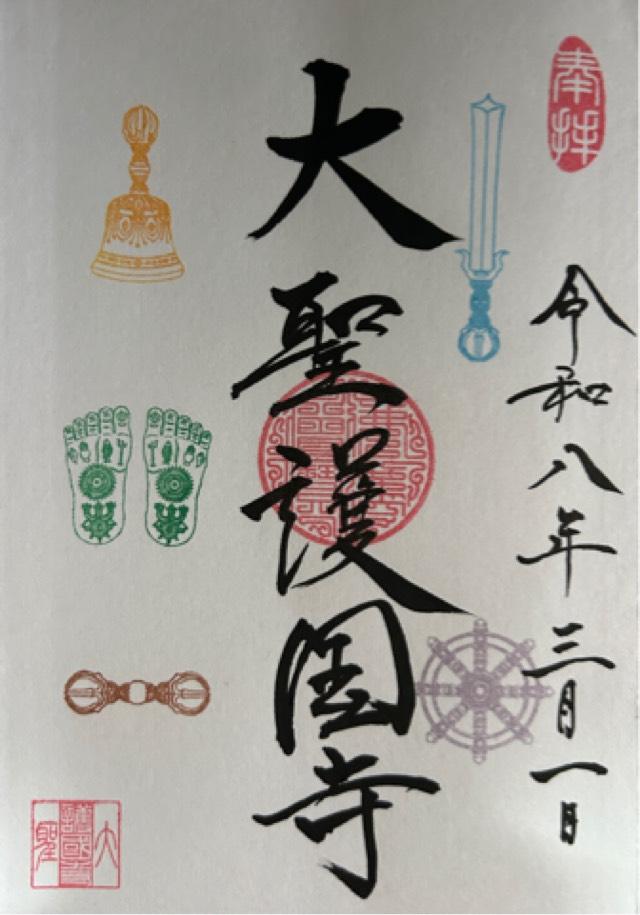 奉拝
令和八年三月一日
大聖護国寺
大聖護國寺